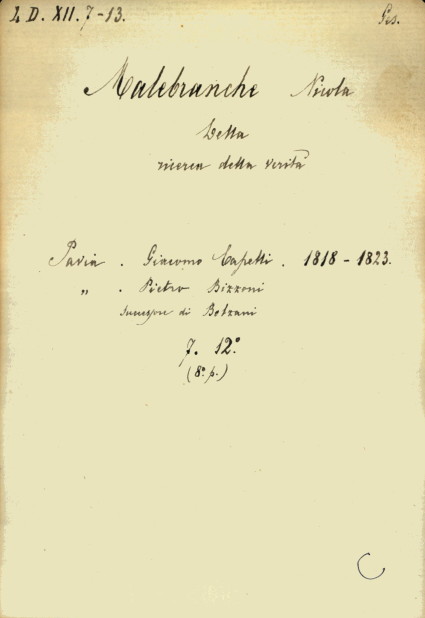 2 D. XII. 7-13. Fis.
Malebranche Nicola
Della
ricerca della verità
Pavia . Giacomo Capelli . 1818 - 1823.
„ . Pietro Bizzoni
successore di Bolzani
7. 12°
(8° p.)
C